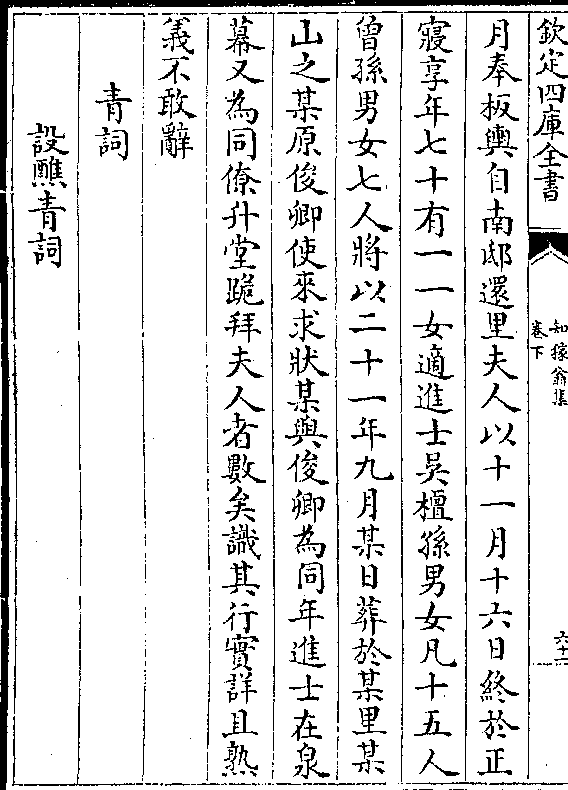 欽定四庫全書
知稼翁集
卷下
六十二
月奉板輿自南邸還里夫人以十一月十六日終於正
寢享年七十有一一女適進士吳檀孫男女凡十五人
曾孫男女七人將以二十一年九月某日葬於某里某
山之某原俊卿使來求狀某與俊卿為同年進士在泉
幕又為同僚升堂跪拜夫人者數矣識其行實詳且熟
義不敢辭
青詞
設醮青詞